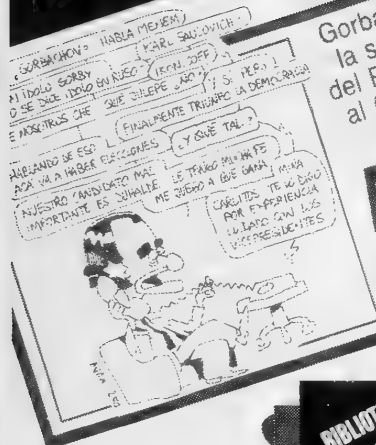 ¿GORBACHOV? HABLA MENEM
KARL SAULOVICH
IDOLO GORBY
SE DICE IDOLO EN RUSO?
NOSOTROS CHE
QUE JULEPE ¿NO?
SI, PERO
FINALMENTE TRIUNFO LA DEMOCRACIA
HABLANDO DE ESO
ACA VA A HABER ELECCIONES
¿Y QUE TAL?
NUESTRO CANDIDATO MAS
IMPORTANTE ES DUHALDE
LE TENGO FE
ME JUEGO A QUE GANA
MIRA
CARLITOS TE LO DIGO
POR EXPERIENCIA
CUIDADO CON LOS
VICEPRESIDENTES
Gorba
la s
del
al
BIBLIOT